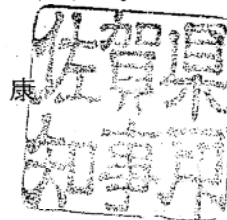 康
佐賀県
知事印